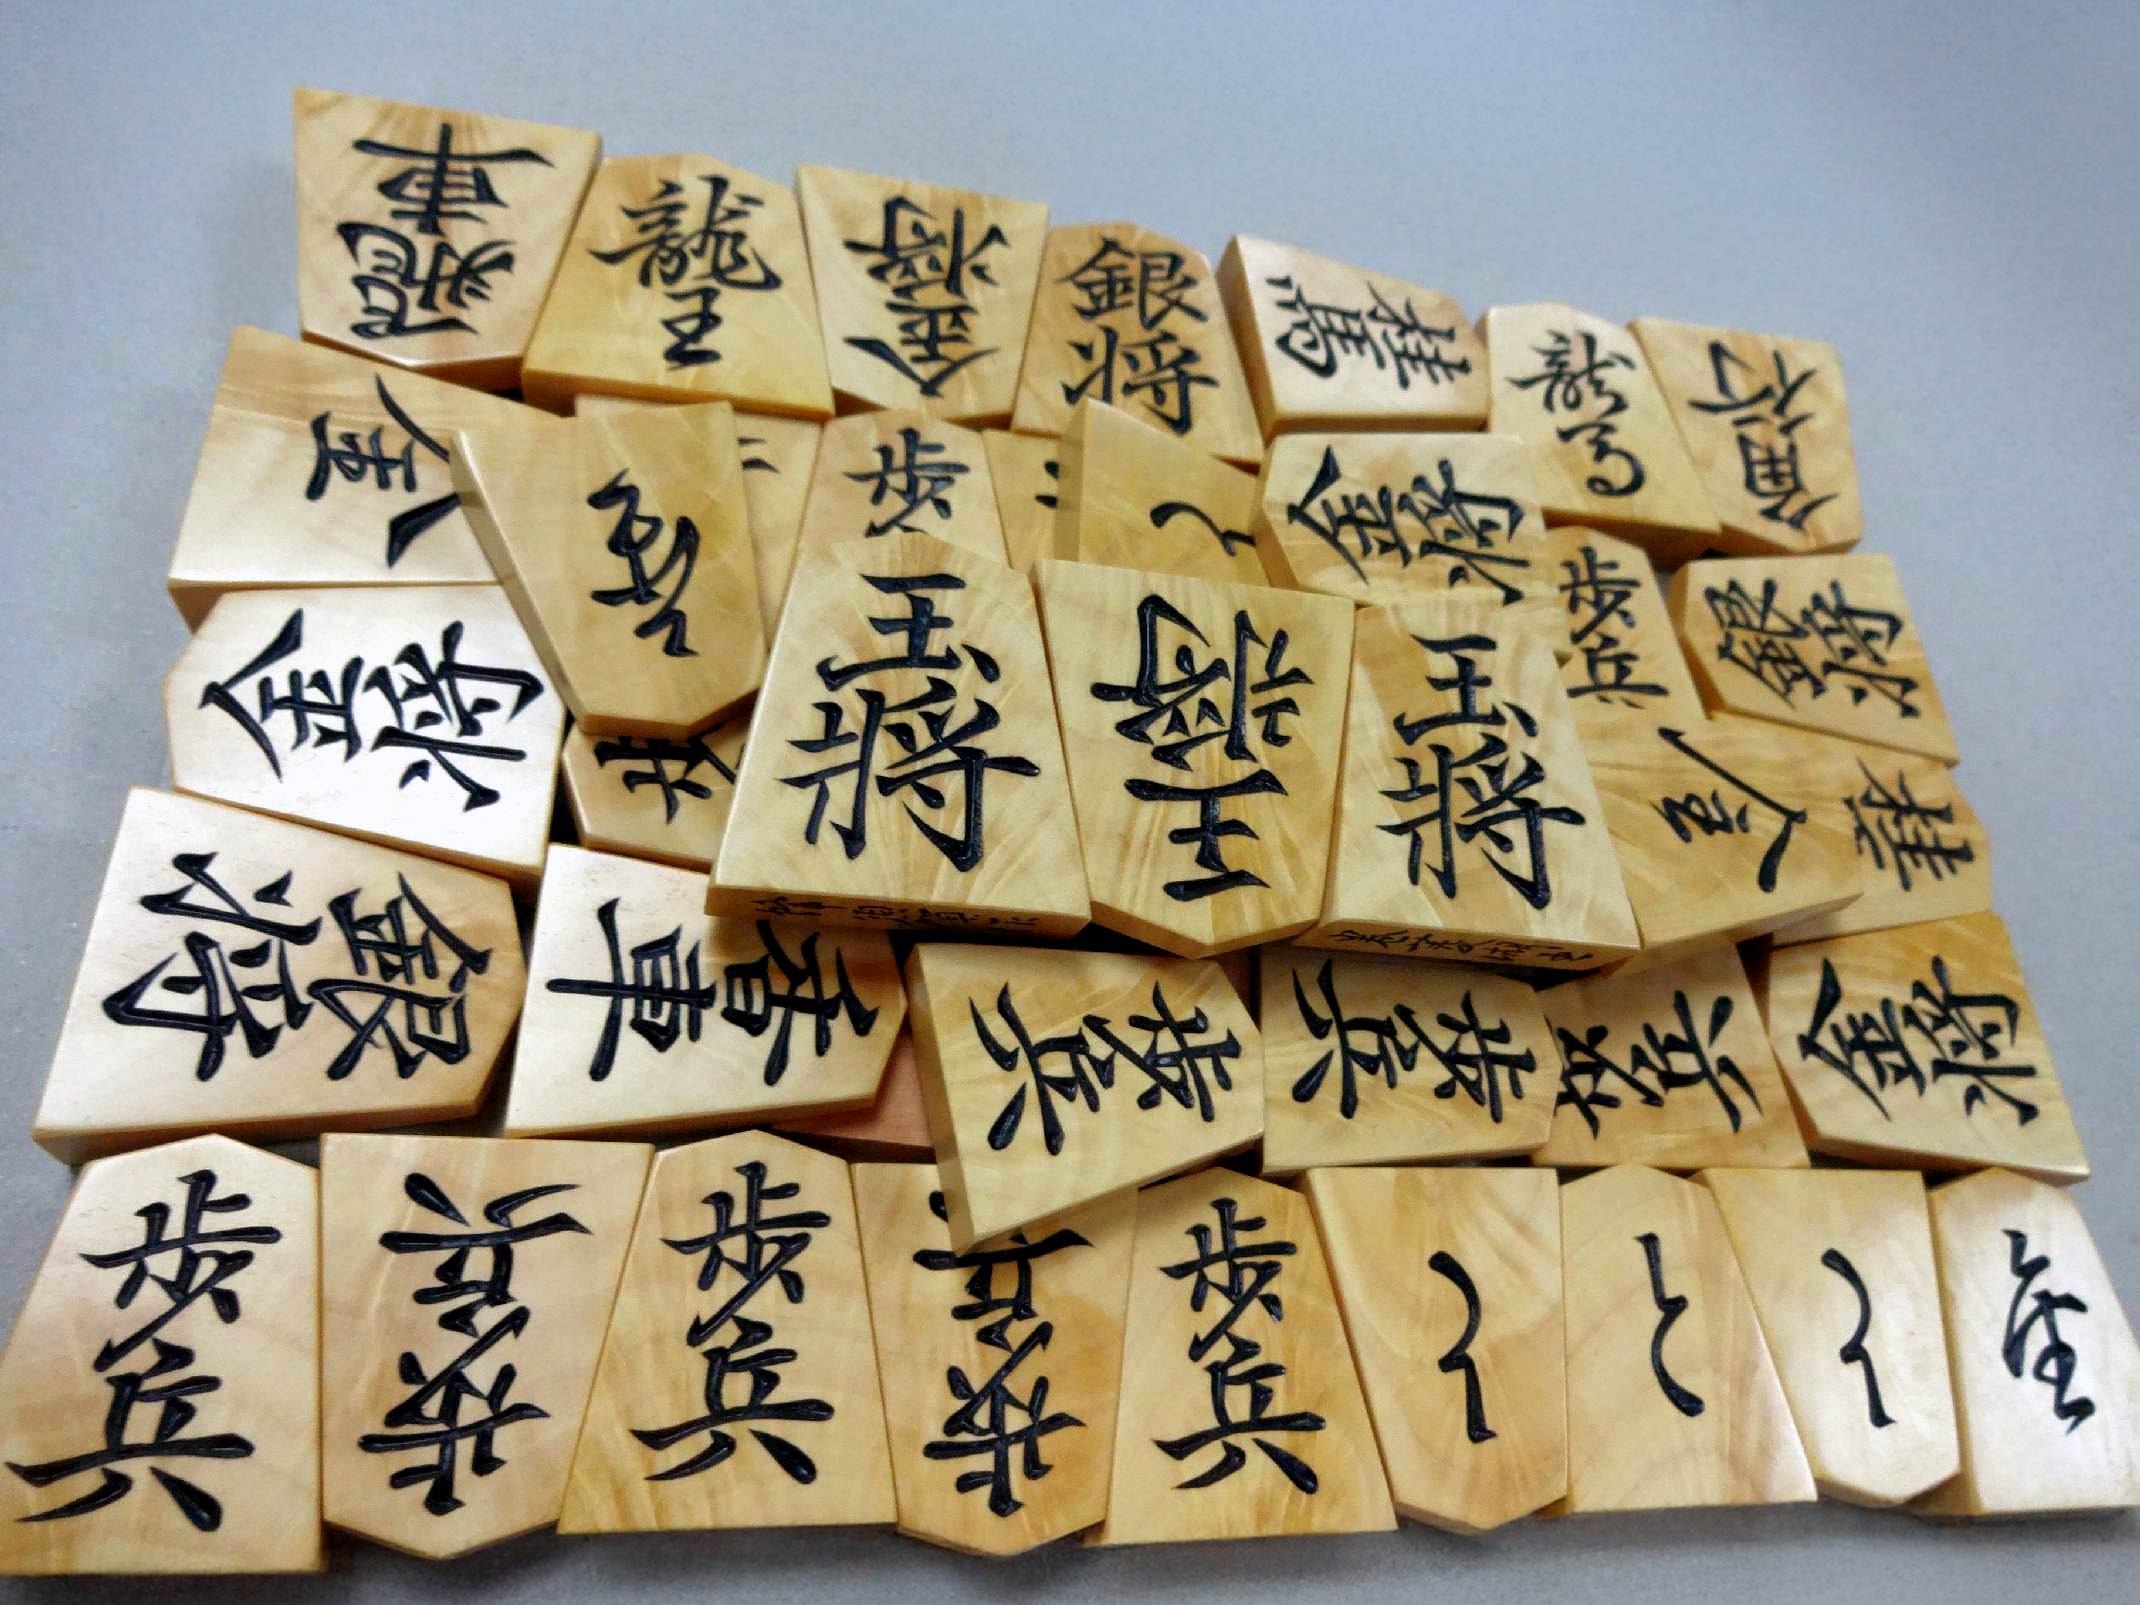 飛車
龍王
金将
銀将
桂馬
龍馬
歩
金将
歩兵
銀将
金将
王将
王将
王将
桂
銀将
香車
歩兵
歩兵
歩兵
金将
歩兵
歩兵
歩兵
歩兵
歩兵
と
と
と